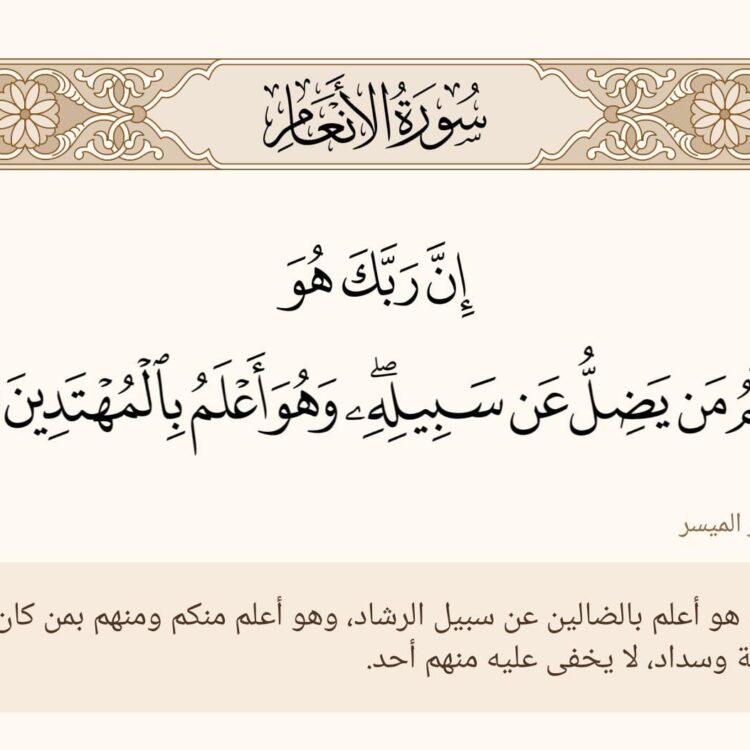 سُورَةُ الأَنْعَامِ
إِنَّ رَبَّكَ هُوَ
مَن يَضِلُّ عَن سَبِيلِهِۦۖ وَهُوَ أَعْلَمُ بِٱلْمُهْتَدِينَ
الميسر
هو أعلم بالضالين عن سبيل الرشاد، وهو أعلم منكم ومنهم بمن كان
وسداد، لا يخفى عليه منهم أحد.